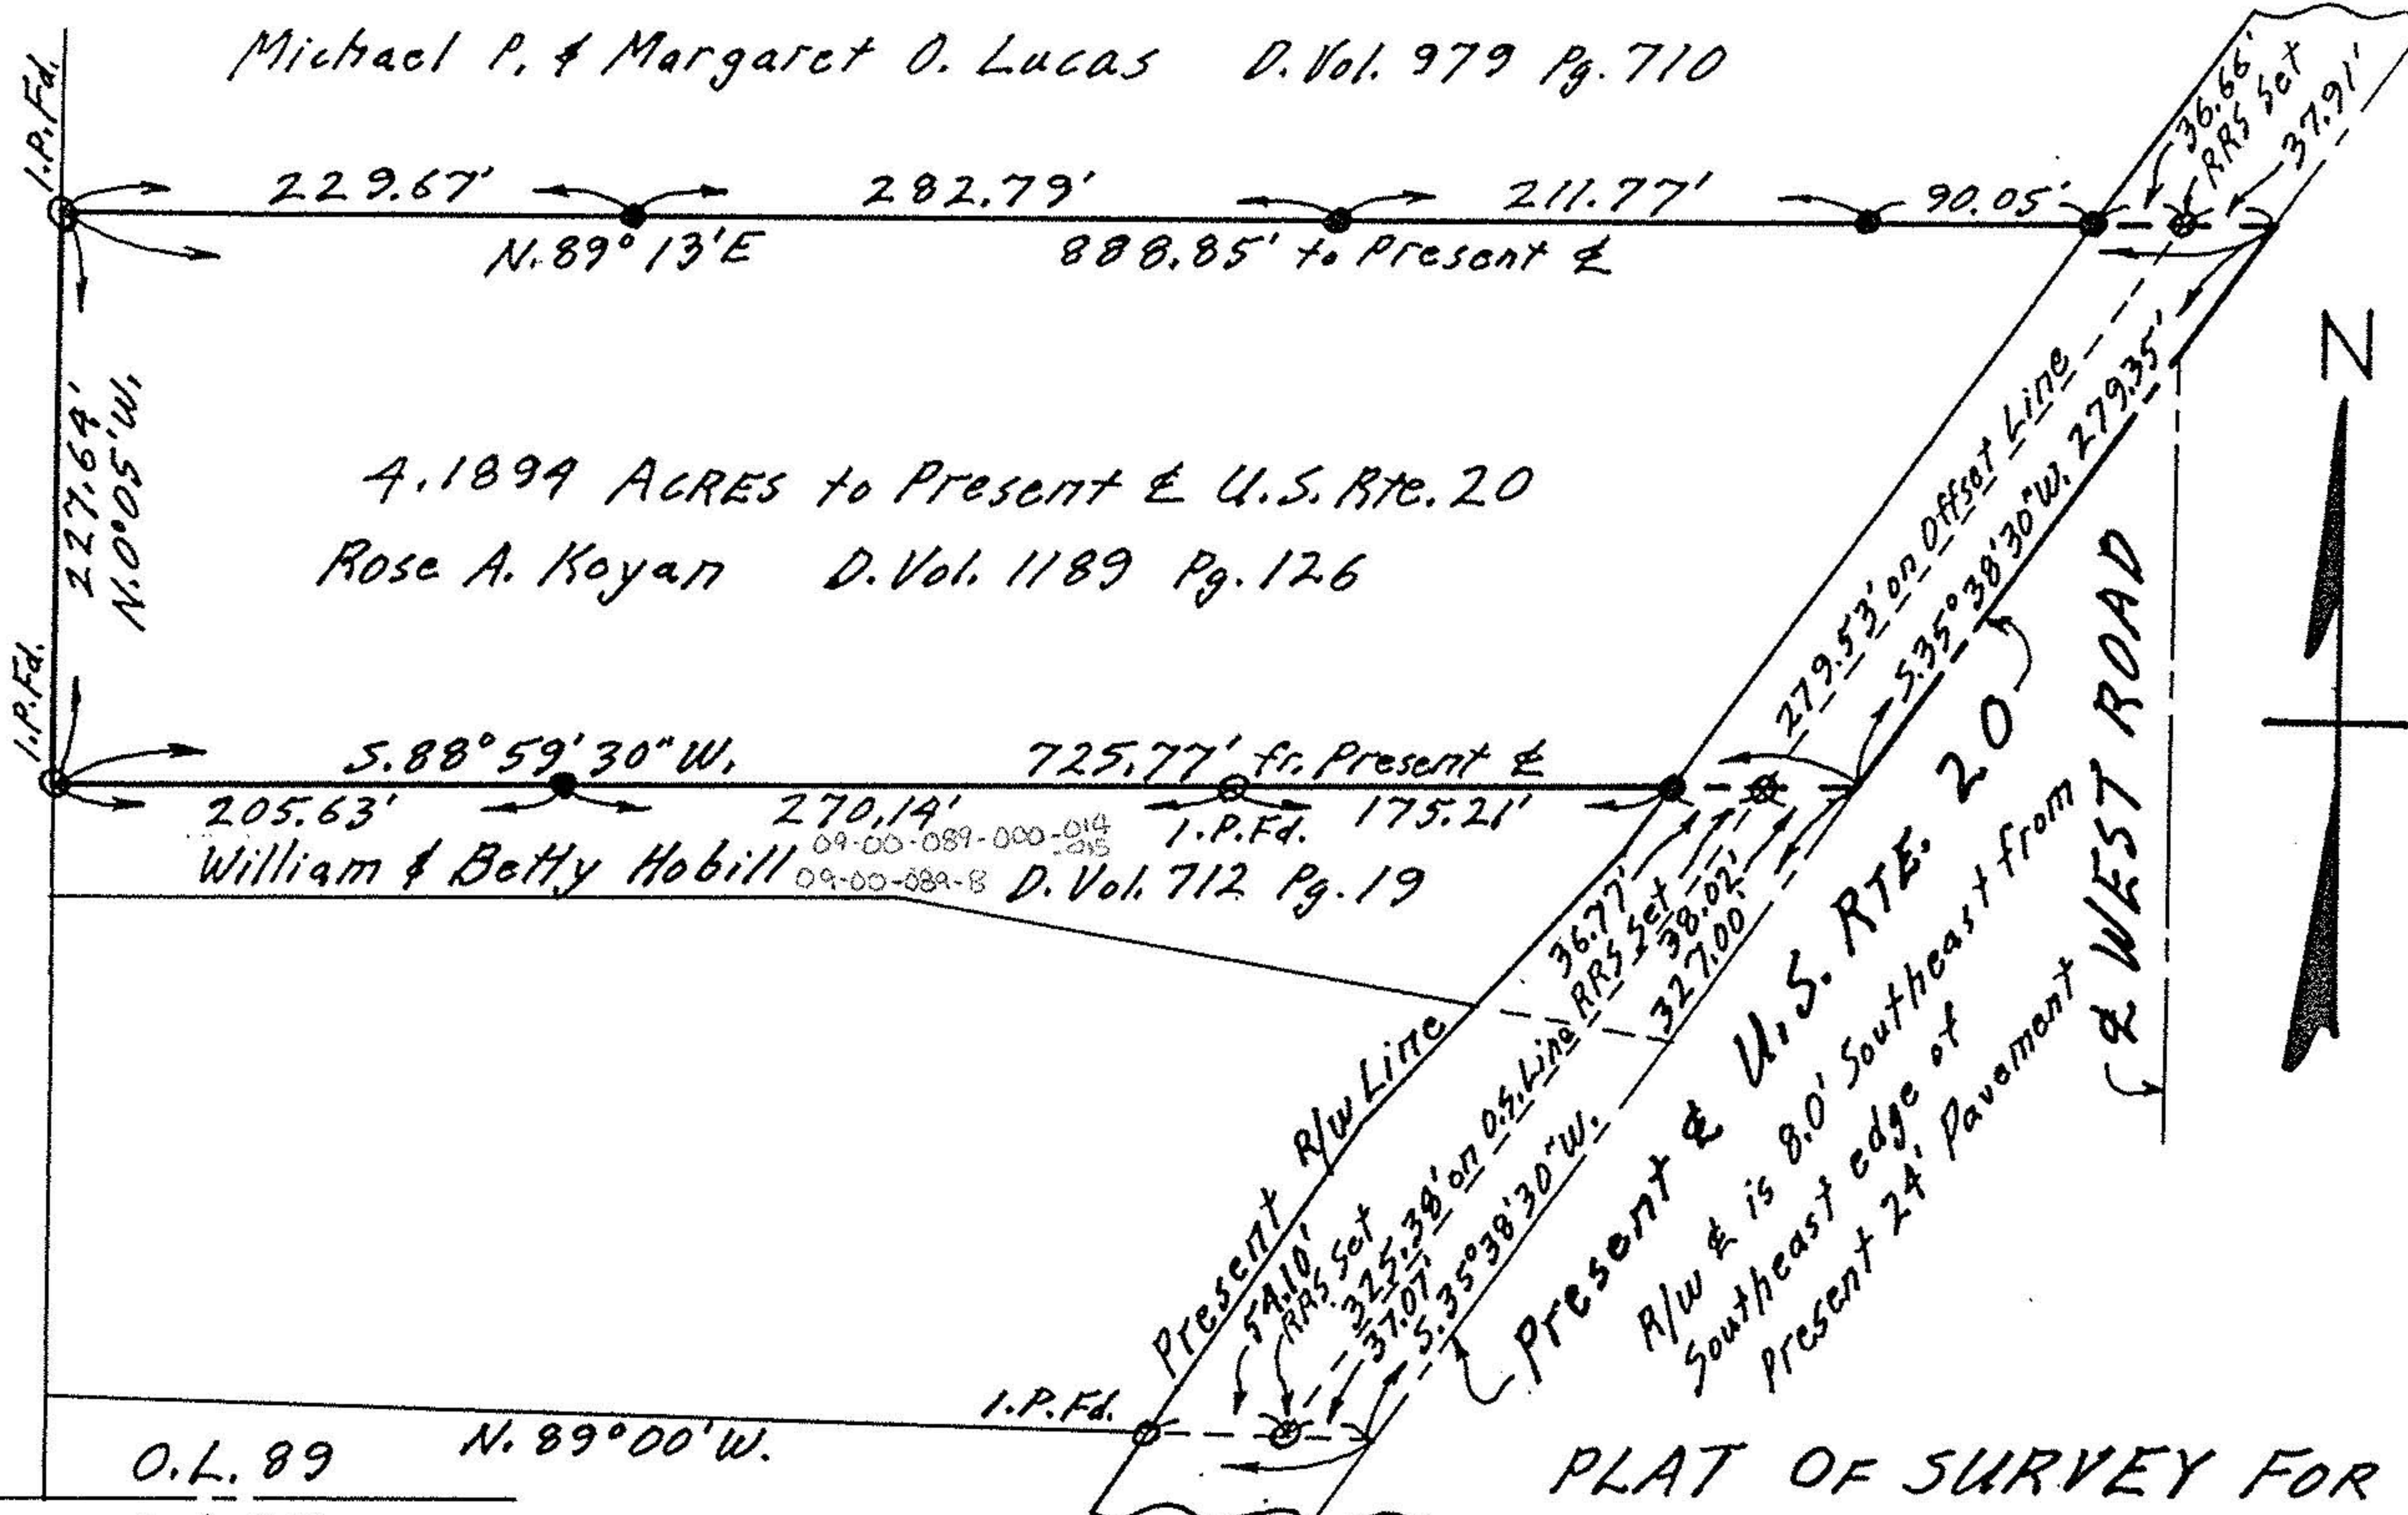 Michael P. & Margaret O. Lucas D. Vol. 979 Pg. 710
I.P. Fd.
36.66'
RRS Set
37.91'
229.67'
282.79'
211.77'
90.05'
N. 89° 13' E
888.85' to Present ℄
N
227.64'
N. 0° 05' W.
4.1894 ACRES to Present ℄ U.S. Rte. 20
Rose A. Koyan D. Vol. 1189 Pg. 126
279.53' on Offset Line
S. 35° 38' 30" W. 279.35'
℄ WEST ROAD
I.P. Fd.
S. 88° 59' 30" W.
725.77' fr. Present ℄
205.63'
270.14'
I.P. Fd.
175.21'
09-00-089-000-014
-015
William & Betty Hobill
09-00-089-8
D. Vol. 712 Pg. 19
36.77'
RRS Set
38.02'
327.00'
Present R/W Line
325.38' on O.S. Line
S. 35° 38' 30" W.
54.10'
RRS Set
37.07'
Present ℄ U.S. RTE. 20
R/W ℄ is 8.0' Southeast from
Southeast edge of
present 24' Pavement
I.P. Fd.
O.L. 89
N. 89° 00' W.
PLAT OF SURVEY FOR